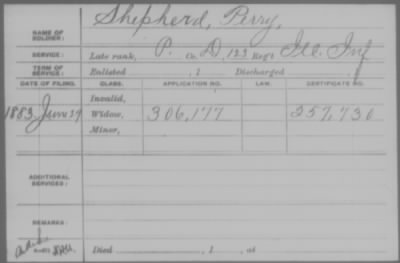 NAME OF SOLDIER: Shepherd, Perry,
SERVICE: Late rank, P. Co. D, 123 Reg't Ill. Inf
TERM OF SERVICE: Enlisted , 1 Discharged , 1
DATE OF FILING. CLASS. APPLICATION NO. LAW. CERTIFICATE NO.
Invalid,
1883 June 29 Widow, 306,177 257,730
Minor,
ADDITIONAL SERVICES:
REMARKS:
Died , 1 , at